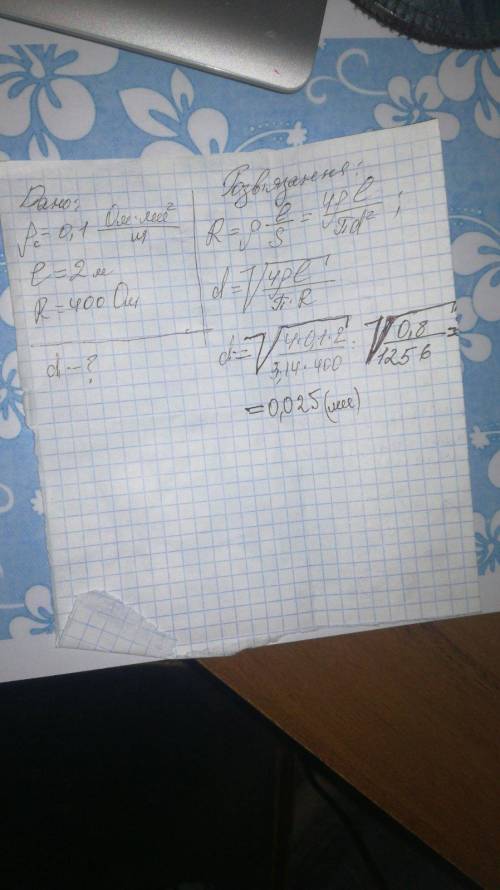 Дано:
ρс = 0,1 Ом·мм²/м
ℓ = 2 м
R = 400 Ом
d - ?
Розв'язання:
R = ρ ℓ/S = 4ρℓ/πd² ;
d = √(4ρℓ/π·R)
d = √(4·0,1·2/3,14·400) = √(0,8/1256) =
= 0,025 (мм)